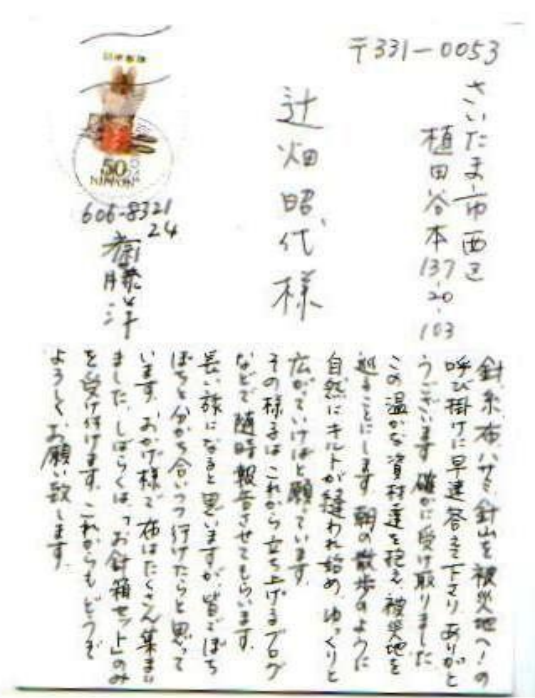 〒331-0053
さいたま市西区
植田谷本137-20-103
辻畑昭代様
日本郵便
50
NIPPON
606-8321
24
齋藤洋
針、糸、布、ハサミ、針山を被災地へ!の
呼び掛けに早速答えて下さりありがと
うございます。確かに受け取りました。
この温かな資材達を抱え、被災地を
巡ることにします。朝の散歩のように
自然にキルトが縫われ始め、ゆっくりと
広がっていけばと願っています。
その様子はこれから立ち上げるブログ
などで随時報告させてもらいます。
長い旅になると思いますが、皆でぼち
ぼちと分かち合いつつ行けたらと思って
います。おかげ様で布はたくさん集まり
ました。しばらくは「お針箱セット」のみ
を受け付けます。これからもどうぞ
よろしくお願い致します。